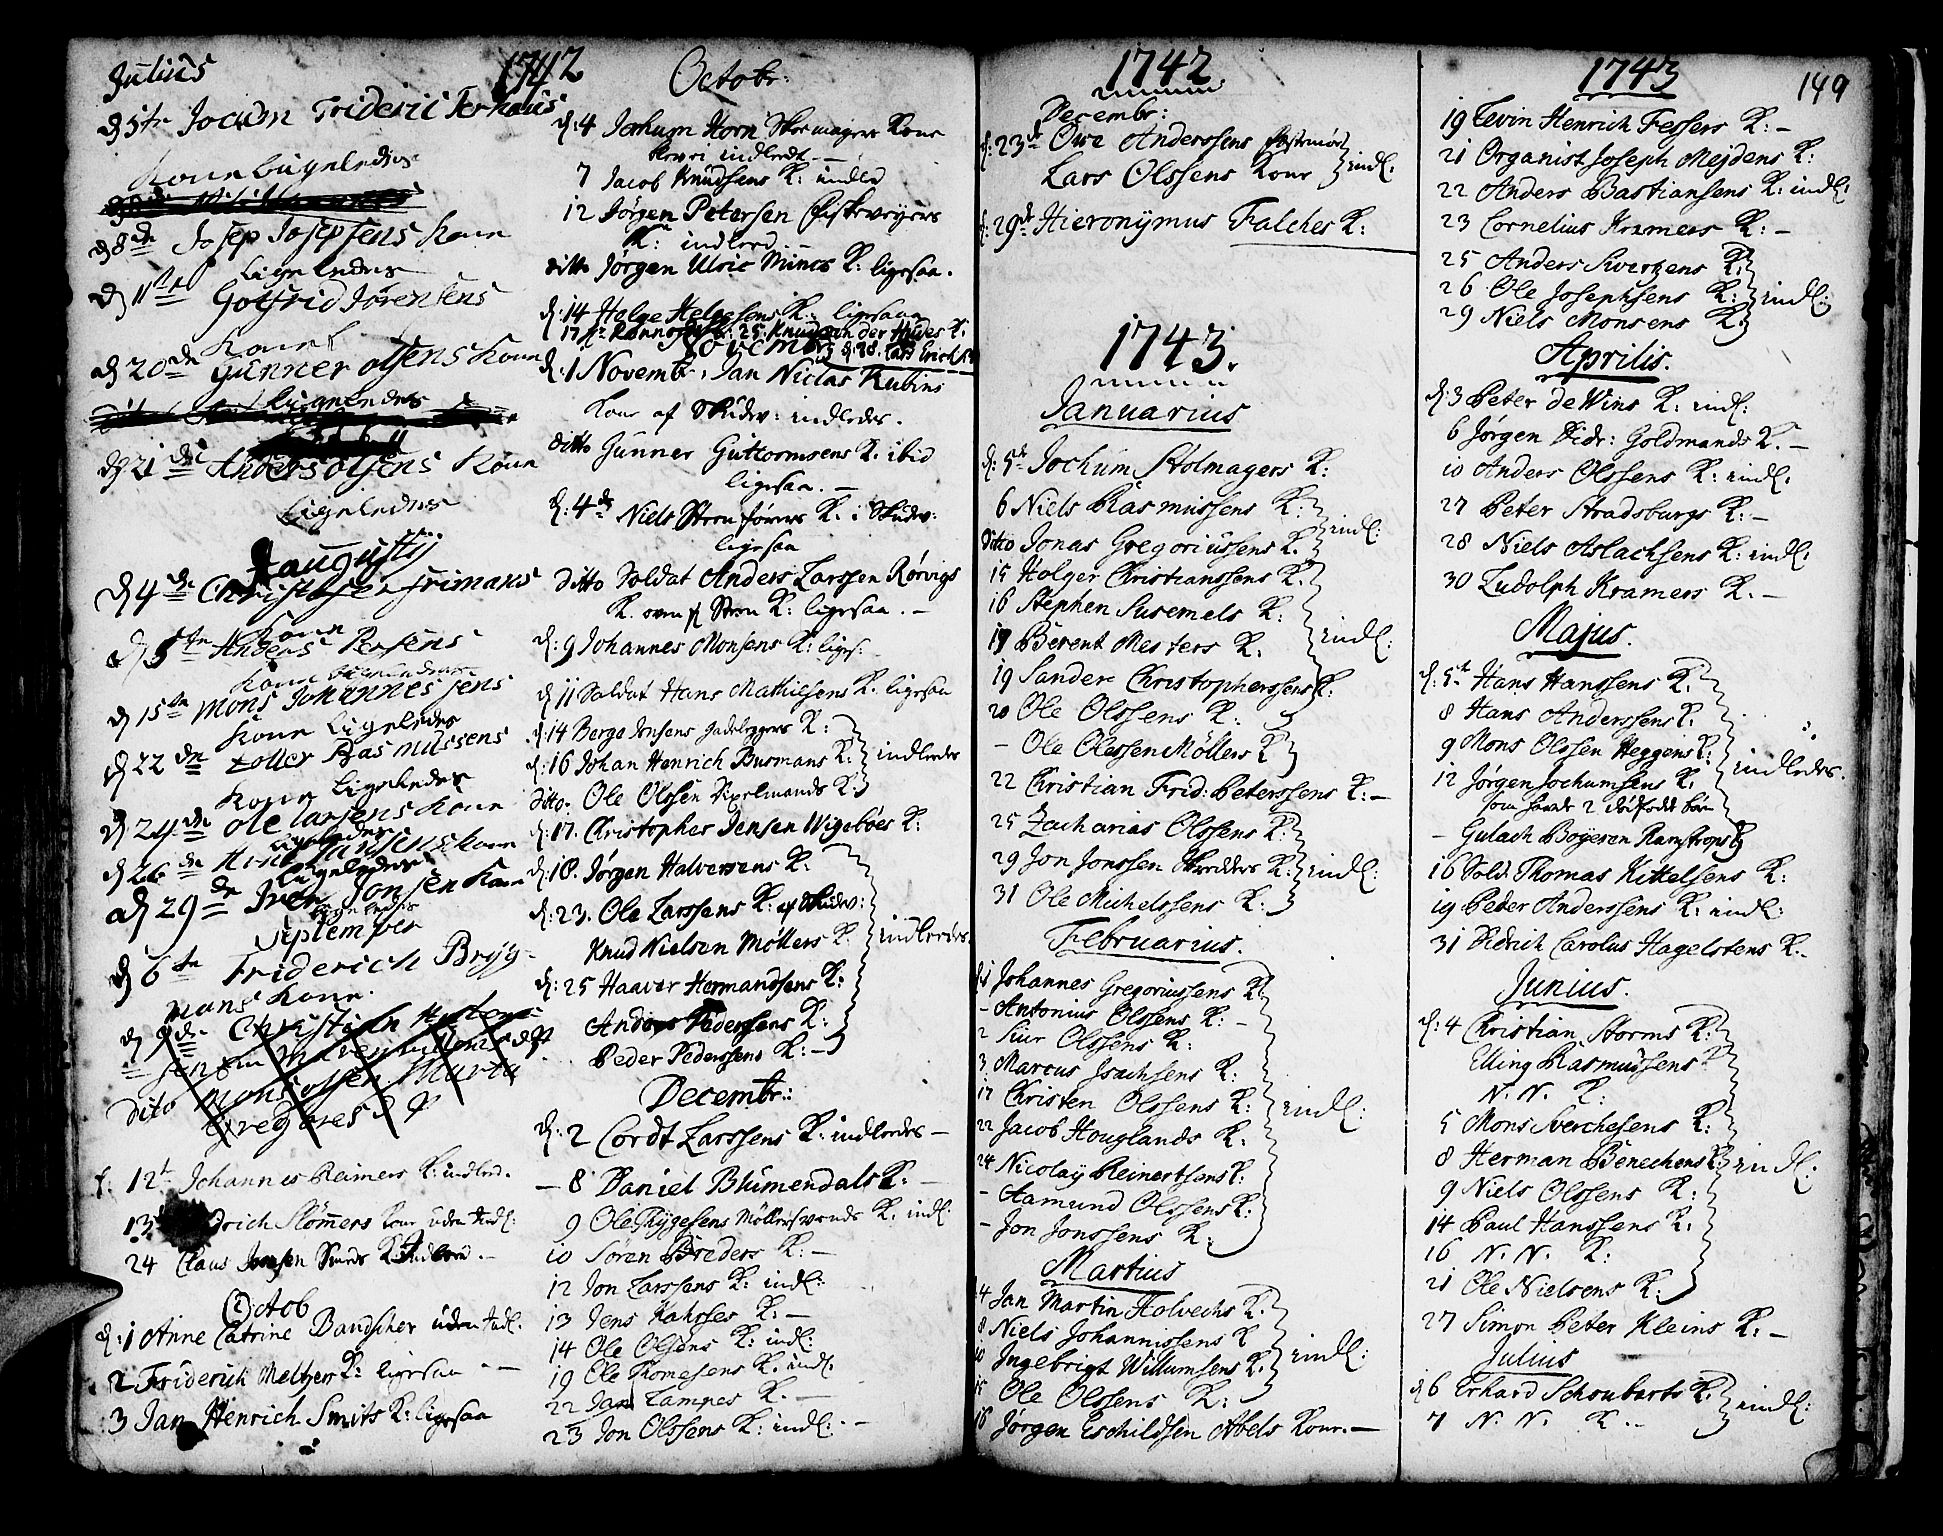 Julius 1742
d 5te Jochem Frideric Terhaus
Kone ligeledes
d 8de Josep Josepsens Kone
Ligeledes
d 11te Gotfrid Jörensens
Kone
d 20de Gunner olsens Kone
Ligeledes
d 21de Anders olsens Kone
Ligeledes
Augusty
d 4de Christopher frimans
Kone
d 5te Anders Persens
Kone ligeledes
d 15te Mons Johannessens
Kone Ligeledes
d 22de toller Rasmussens
Kone Ligeledes
d 24de ole larsens Kone
Ligeledes
d 26de Kone
Ligeledes
d 29de Iver Jonsen Kone
ligeledes
September
d 6te Friderich Bryg-
mans Kone.
d 9de Christian
dito mons olsen Marta
Gregores d
d: 12t Johannes Reimers K: indled.
13 drich Slömers Kone uden Indl:
24 Claus Jensen Smeds K: Indleed. -
Octob
d: 1 Anne Catrine Bandscher uden Indl:
2 Friderich Meltzers K: ligesaa - -
3 Jan Henrich Smits K: ligesaa
Octobr:
d: 4 Jochum Horn Skoemagers Kone
blevei indledt -
7 Jacob Knudsens K: indled
12 Jörgen Petersen Fiskeveyers
K: indleed. -
ditto Jörgen Ulric Mincs K: ligesaa.
d: 14 Helge Helgesens K: ligesaa
17 K: 25. Knud von der Hudes K:
Novemb: d. 28. Lars Erichs K:
d: 1 Novembr, Jan Niclas Rubins
Kone af Skudev: indledes.
ditto Gunner Guttormsens K. ibid
ligesaa. -
d: 4de Niels Steen förers K. i Skudev:
ligesaa
ditto Soldat Anders Larssen Rörvigs
K. oven Steen K: ligesaa. -
d: 9 Johannes Monsens K: liges:
d: 11 Soldat Hans Mathiesens K. ligesaa
d: 14 Berge Jensens Gadeleggers K:
d: 16 Johan Henrich Busmans K: indledes
ditto. Ole Olssen Dixelmands K:
d: 17. Christopher Jensen Wigeböes K:
d: 18. Jörgen Halversens K:
d: 23. Ole Larssens K: af Skudev:
Knud Nielsen Möllers K. indleedes.
d: 25 Haaver Hermandsens K:
Anders Pederssens K:
Peder Pederssens K: -
Decembr:
d: 2 Cordt Larssens K: indleedes -
- 8 Daniel Blumendals K: -
9 Ole Thygesens Möllersvends K: indl:
10 Sören Breders K: -
12 Jon Larssens K: indl:
13 Jens Kahrses K: -
14 Ole Olsens K: indl:
19 Ole Thomesens K. indl.
22 Jan Lampes K. -
23 Jon Olssens K: indl: -
1742.
Decembr:
d: 23de Owe Anderssens
Lars Olssens Kone indl:
d: 29de Hieronymus Falches K:
1743.
Januarius
d: 5t Jochum Stolmagers K:
6 Niels Rasmussens K: indl:
Ditto Jonas Gregoriussens K.
15 Holger Christianssens K.
16 Stephen Susemels K:
19 Berent Mesters K. indl:
19 Sander Christopherssens K:
20 Ole Olssens K:
- Ole Olessen Möllers K
22 Christian Frid: Peterssens K: -
25 Zacharias Olssens K:
29 Jon Jonssen Skredders K: indl:
31 Ole Michelssens K:
Februarius.
d 1 Johannes Gregoriussens K:
- Antonius Olssens K: -
2 Siur Olssens K:
3 Marcus Isachsens K:
17 Christen Olssens K: indl:
22 Jacob Houglands K:
24 Nicolay Reinertsens K:
- Aamund Olssens K:
- Jon Jonssens K:
Martius
4 Jan Martin Holvechs K:
8 Niels Johannissens K
10 Ingebrigt Willumsens K: indl:
15 Ole Olssens K:
16 Jörgen Eschildsen Abels Kone. -
1743 149
19 Levin Henrich Fessers K: -
21 Organist Joseph Mejdens K:
22 Anders Bastiansens K: indl:
23 Cornelius Kramers K: -
25 Anders Swertzens K:
26 Ole Josephsens K: indl:
29 Niels Monsens K
Aprilis.
d: 3 Peter de Wins K: indl:
6 Jörgen Didr: Goldmands K. -
10 Anders Olssens K: indl.
27 Peter Stradsburgs K: -
28 Niels Aslachsens K: indl:
30 Ludolph Kramers K. -
Majus.
d: 5t Hans Hanssens K:
8 Hans Anderssens K:
9 Mons Olssen Heggens K:
12 Jörgen Jochumsens K. indledes.
som havde 2 dödfödde bör
- Gulach Boyesen Ramstrops K
16 Sold: Thomas Kittelsens K:
19 Peder Anderssens K: indl:
31 Didrich Carolus Hagelstens K. -
Junius.
d: 4 Christian Storms K:
Elling Rasmussens K
N. N. K:
5 Mons Sverchesens K:
8 Herman Benechens K: indl:
9 Niels Olssens K:
14 Paul Hanssens K:
16 N. N. K:
21 Ole Nielsens K:
27 Simon Peter Kleins K: -
Julius
d 6 Erhard Schoubarts K: indl:
7 N. N. K. -